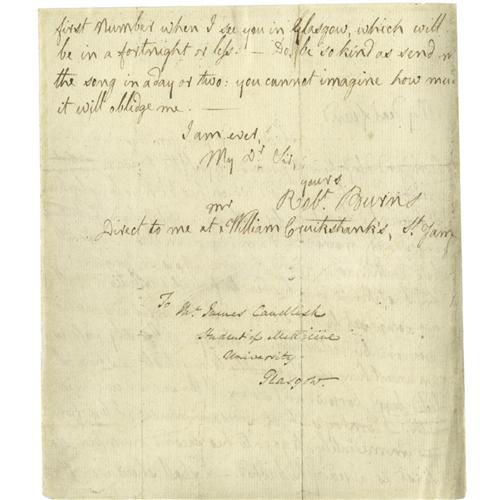 first Number when I see you in Glasgow, which will
be in a fortnight or less. — Do, be so kind as send
the song in a day or two: you cannot imagine how
it will oblidge me. —
I am ever,
My Dr Sir,
yours
Robt. Burns
Direct to me at Mr William Cruikshank's, St.
To
Mr. James Candlish
Student of Medicine
University
Glasgow.